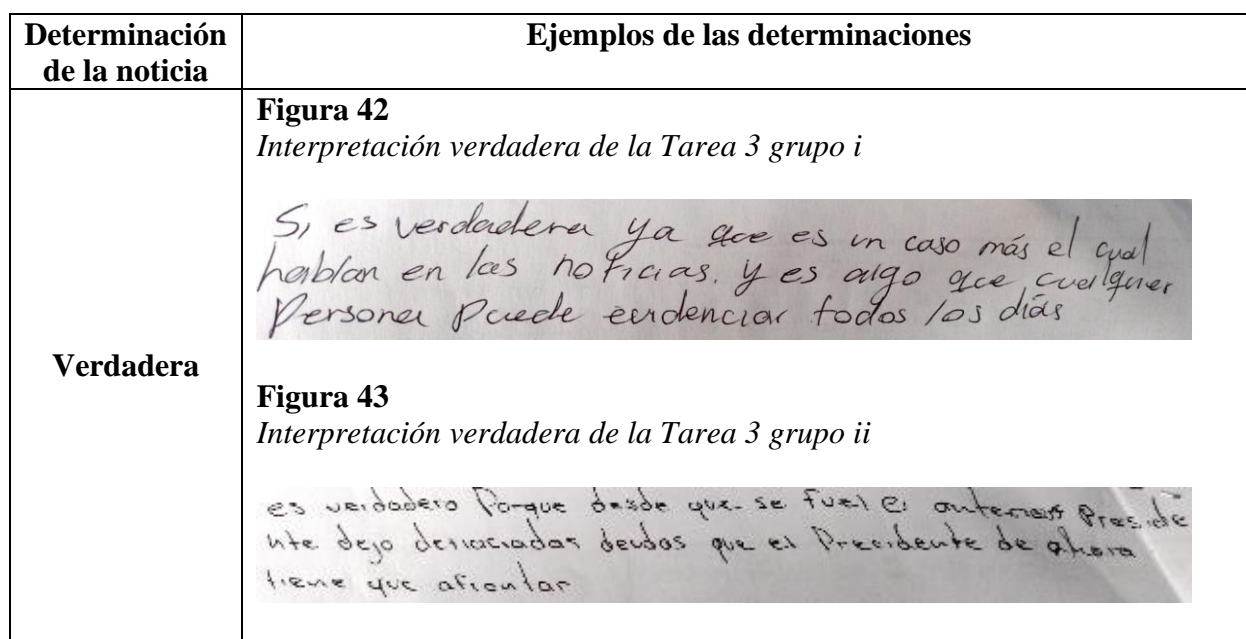 Determinación
de la noticia
Ejemplos de las determinaciones
Verdadera
Figura 42
Interpretación verdadera de la Tarea 3 grupo i
Si es verdadera ya que es un caso más el cual
hablan en las noticias. y es algo que cualquier
Persona Puede evidenciar todos los diás
Figura 43
Interpretación verdadera de la Tarea 3 grupo ii
es verdadero Porque desde que se fue el Preside
nte dejo deudas que el Presidente de ahora
tiene que afrontar